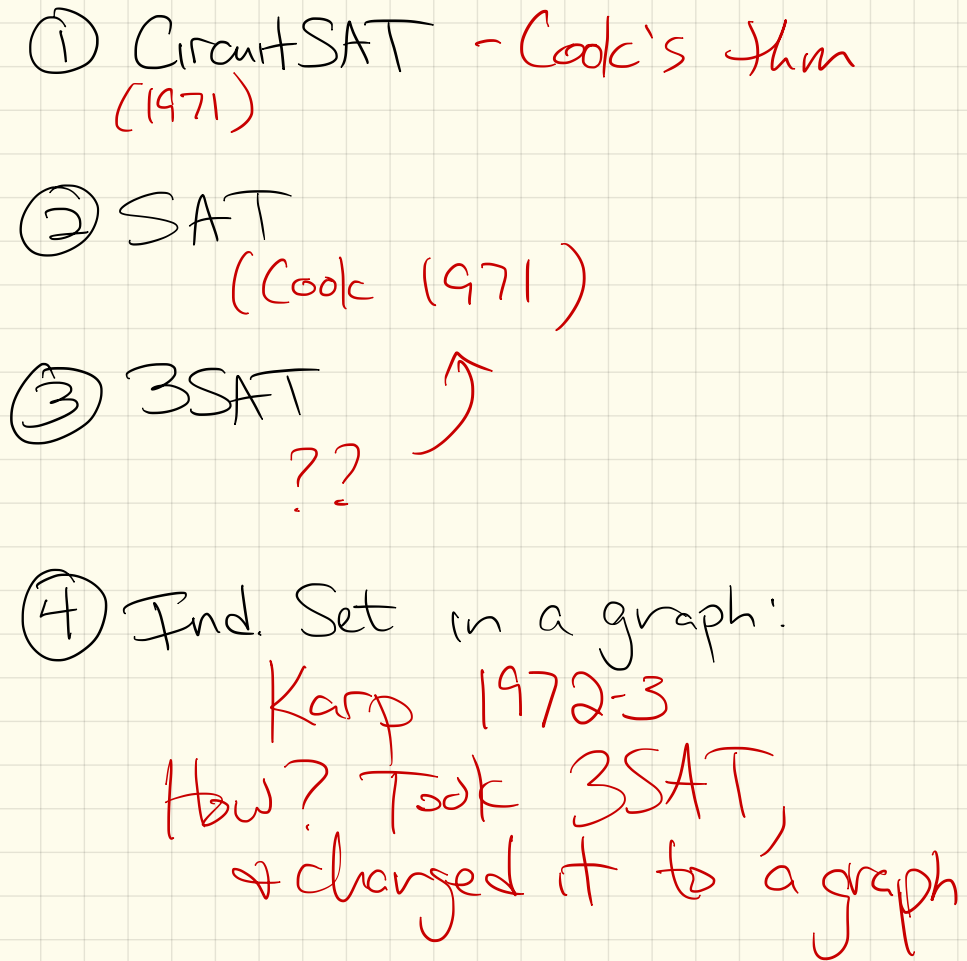 ① CircuitSAT - Cook's thm
(1971)
② SAT
(Cook 1971)
③ 3SAT
??
④ Ind. Set in a graph:
Karp 1972-3
How? Took 3SAT,
& changed it to a graph